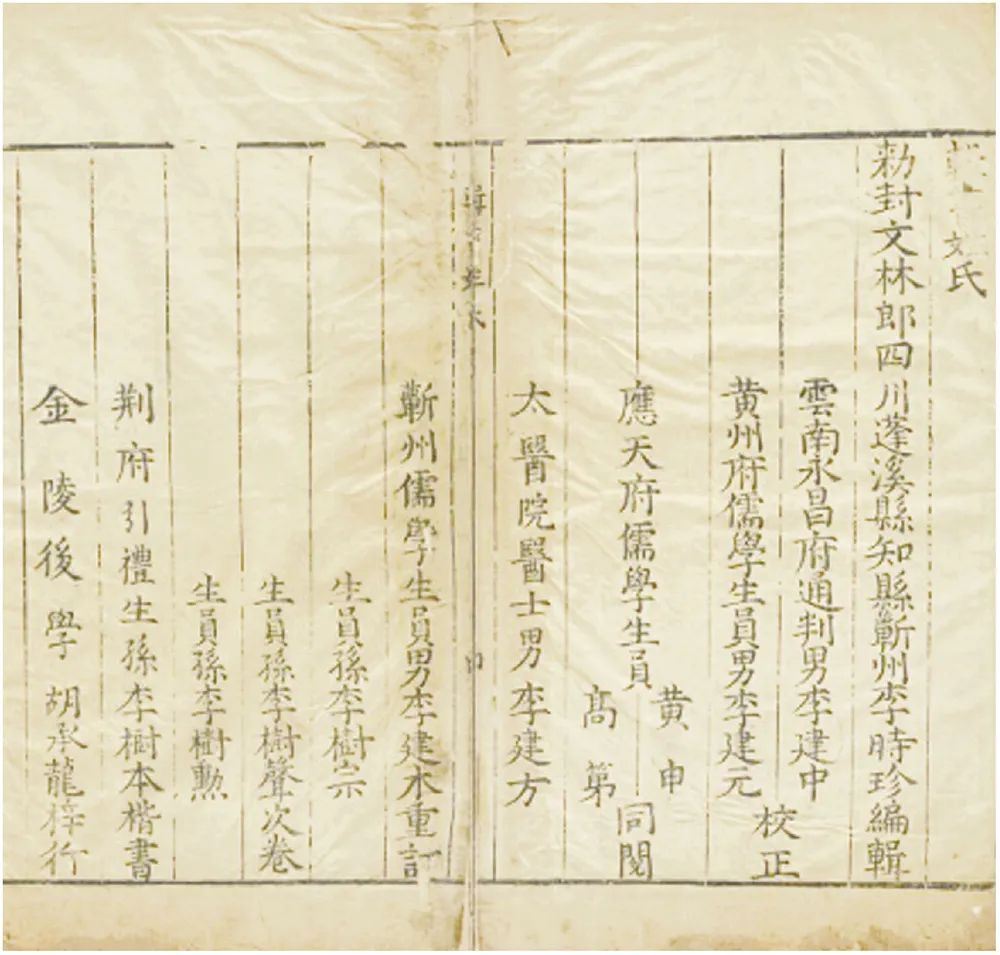 氏
勑封文林郎四川蓬溪縣知縣蘄州李時珍編輯
雲南永昌府通判男李建中
黃州府儒學生員男李建元
校正
應天府儒學生員
黃申
高第
同閱
太醫院醫士男李建方
蘄州儒學生員男李建木重訂
生員孫李樹宗
生員孫李樹聲次卷
生員孫李樹勲
荆府引禮生孫李樹本楷書
金陵後學胡承龍梓行